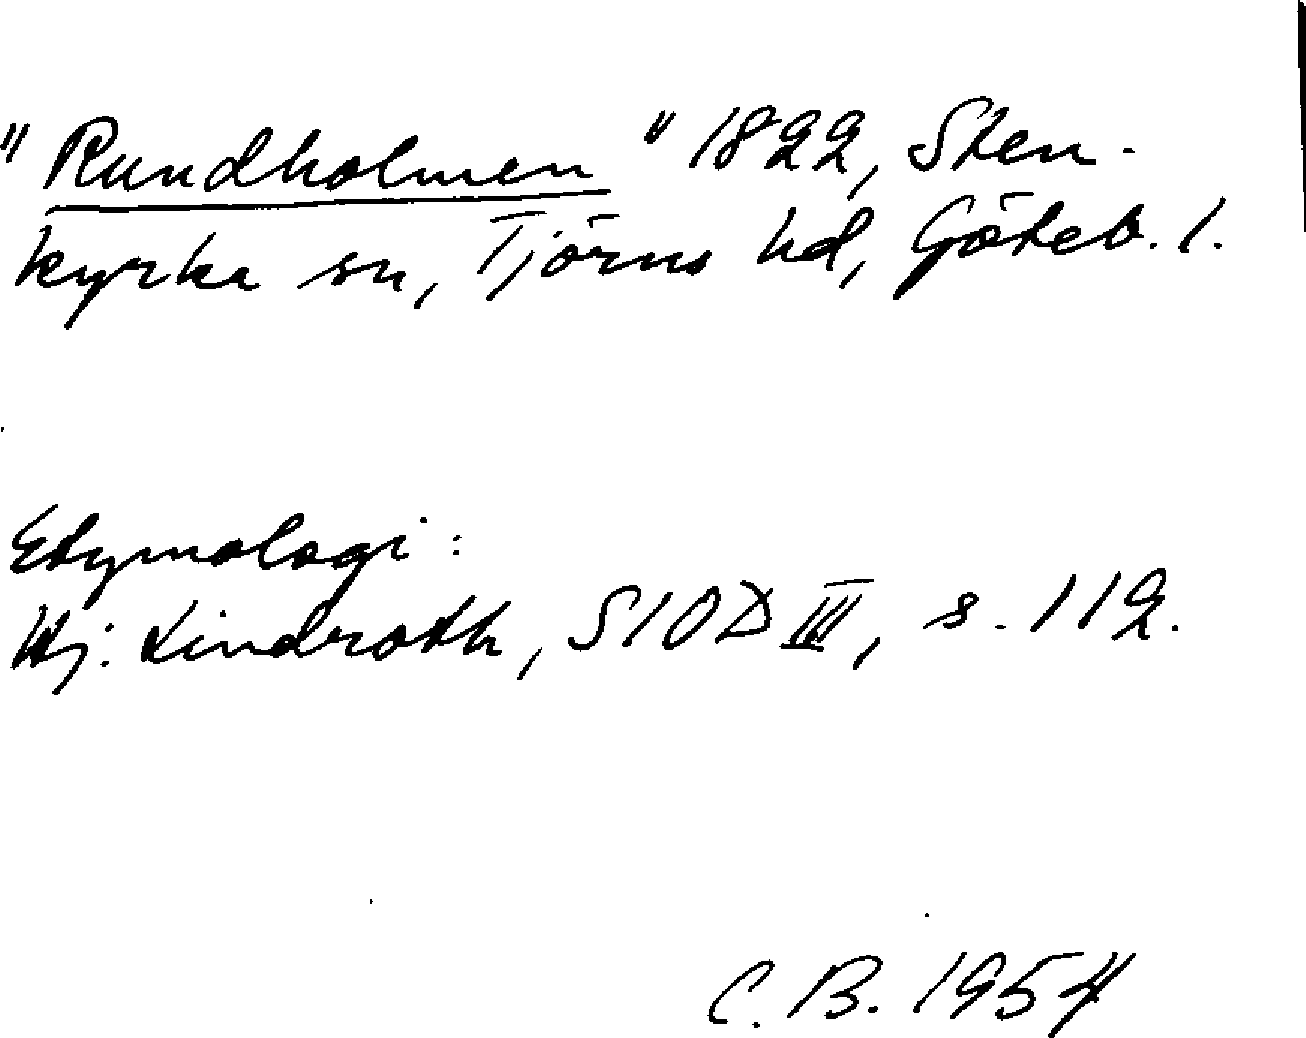 "Rundholmen" 1822, Sten-
kyrka sn, Tjörns hd, Göteb. l.
Etymologi:
Hj. Lindroth, SIOD III, s. 112.
C. B. 1954